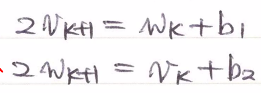 2v_{k+1} = w_k + b_1
2w_{k+1} = v_k + b_2